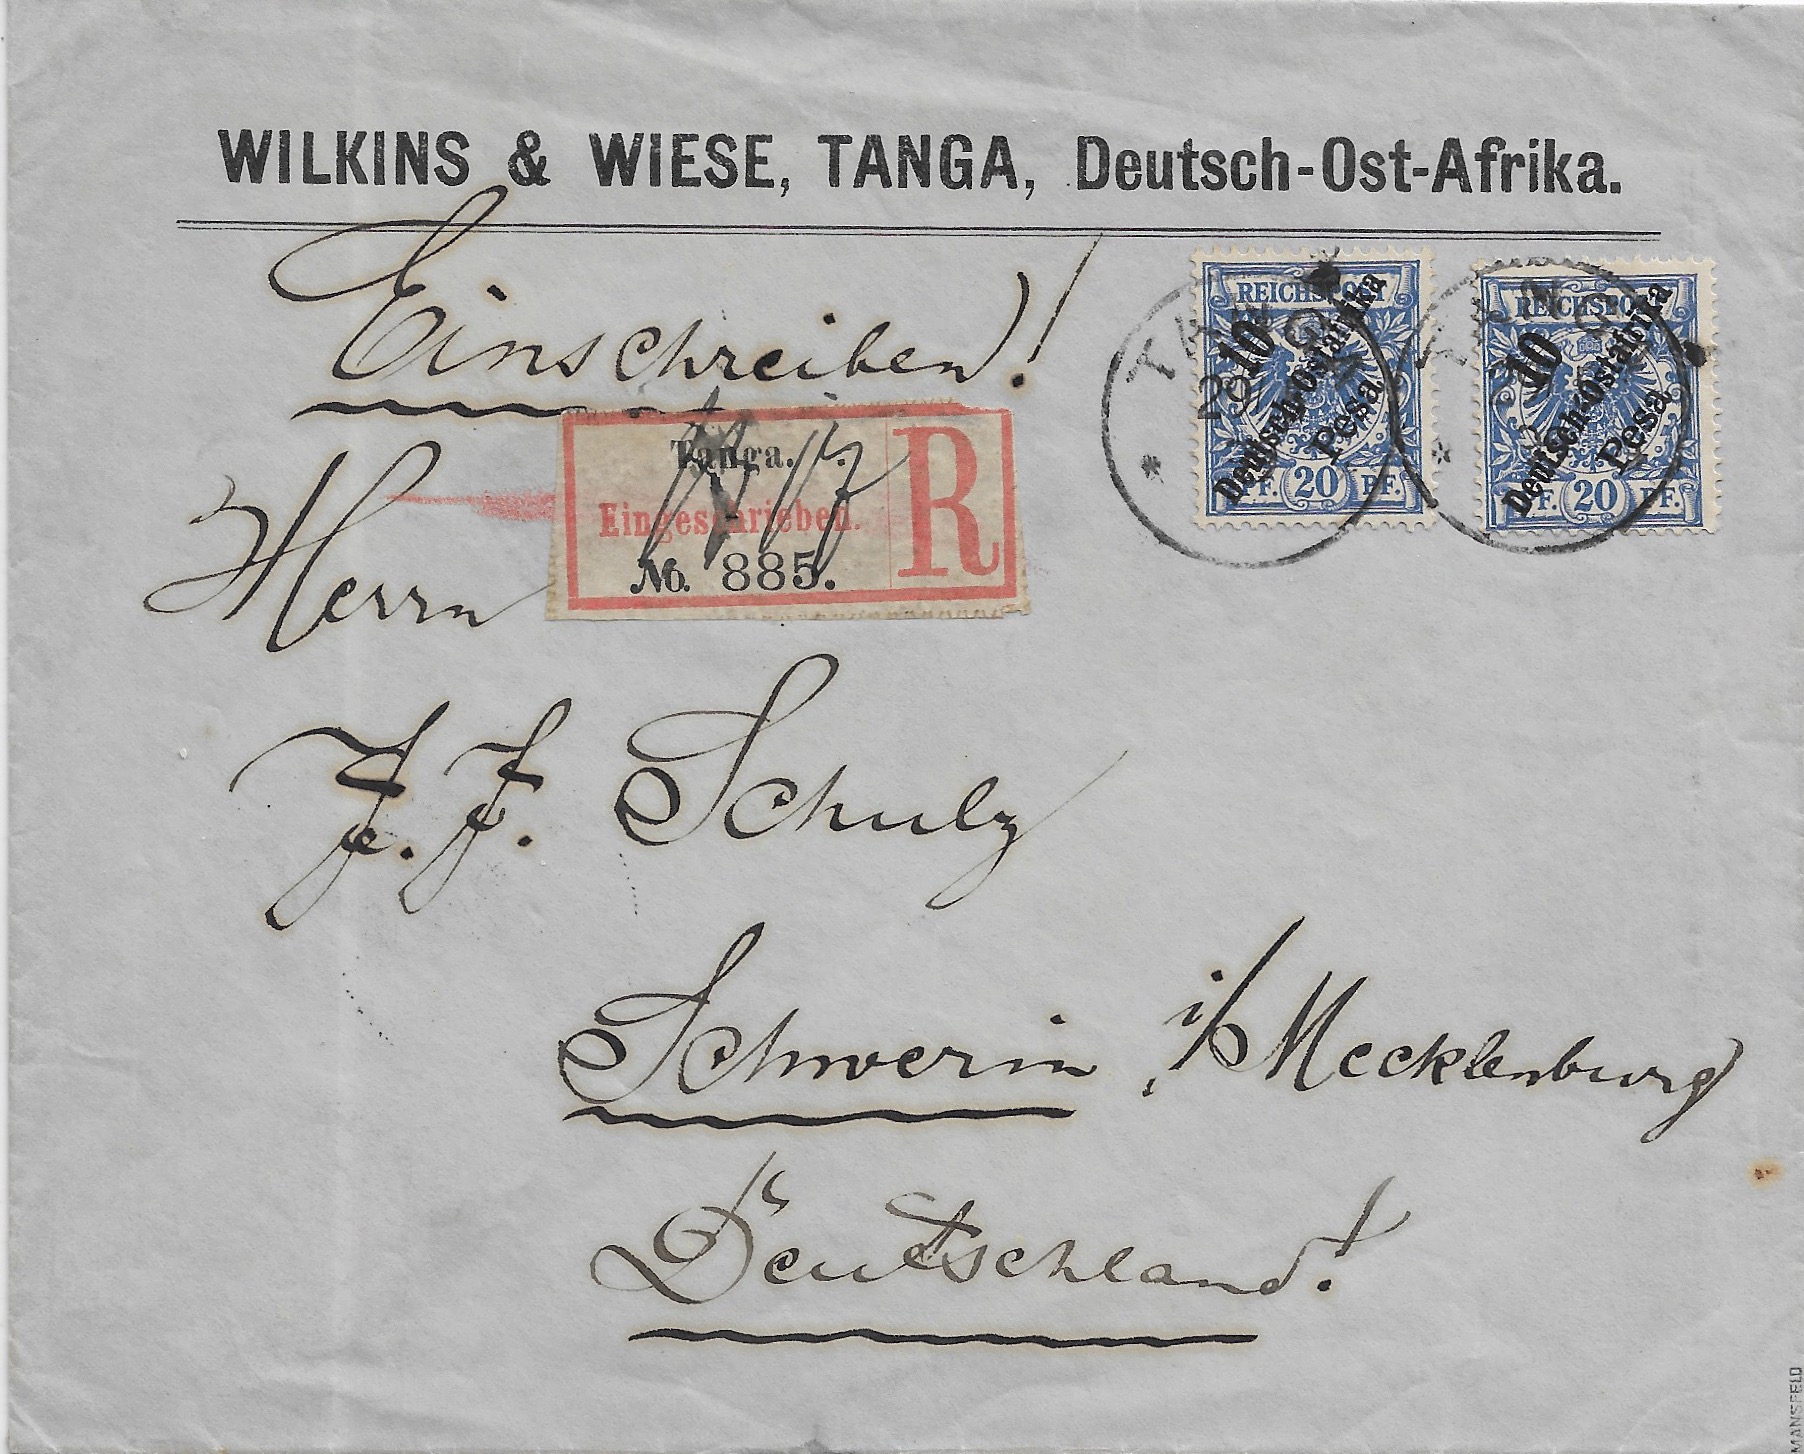 WILKINS & WIESE, TANGA, Deutsch-Ost-Afrika.
Einschreiben!
REICHSPOST
10
Deutsch-Ostafrika
Pesa
PF. 20 PF.
REICHSPOST
10
Deutsch-Ostafrika
Pesa
PF. 20 PF.
TANGA
Tanga.
Eingeschrieben.
No. 885.
R
Herrn
J. J. Schulz
Schwerin i/Mecklenburg
Deutschland!
MANSFELD